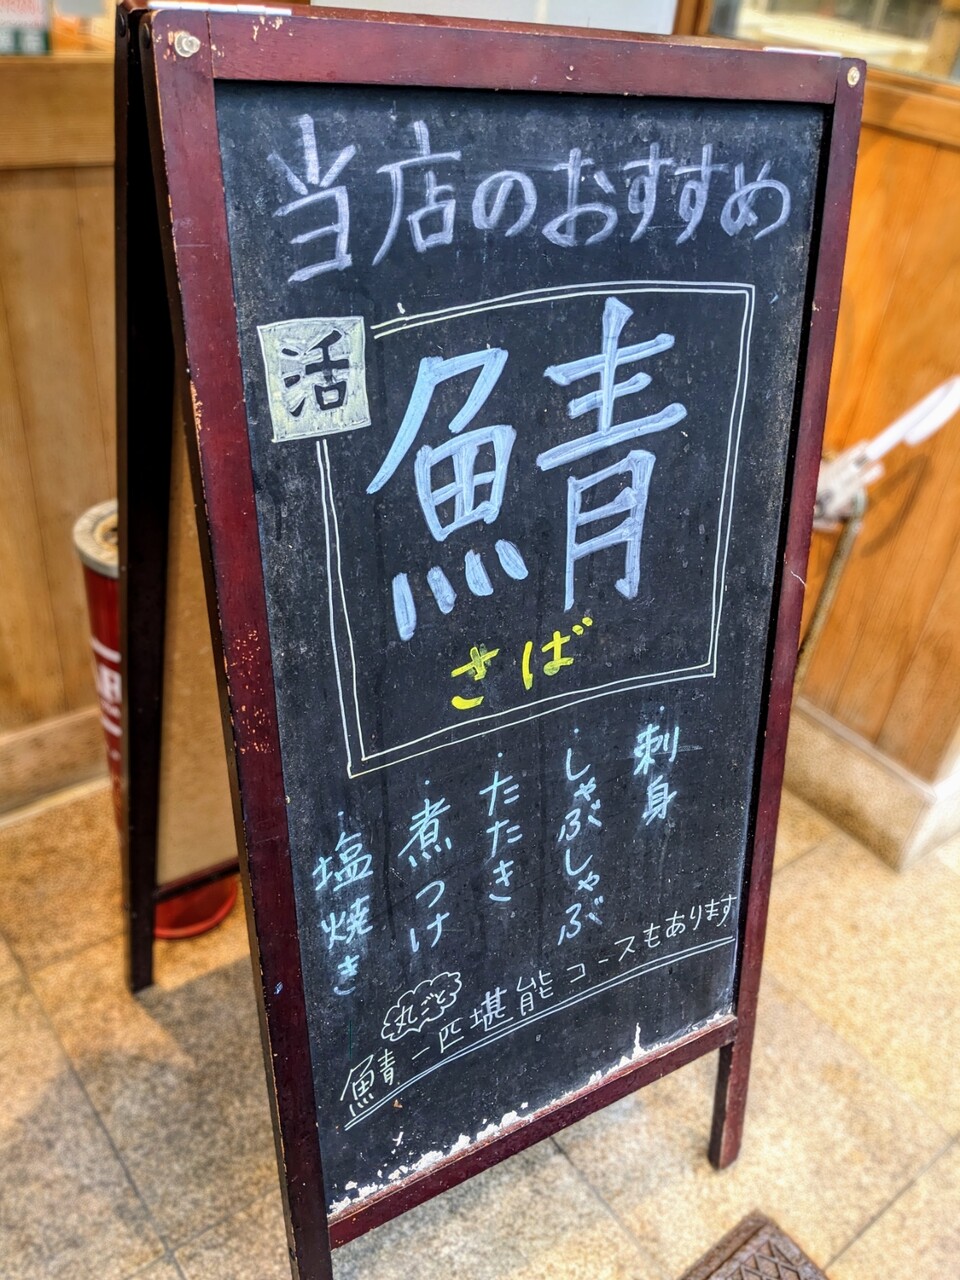 当店のおすすめ
活
鯖
さば
・刺身
・しゃぶしゃぶ
・たたき
・煮つけ
・塩焼き
丸ごと
鯖一匹堪能コースもあります